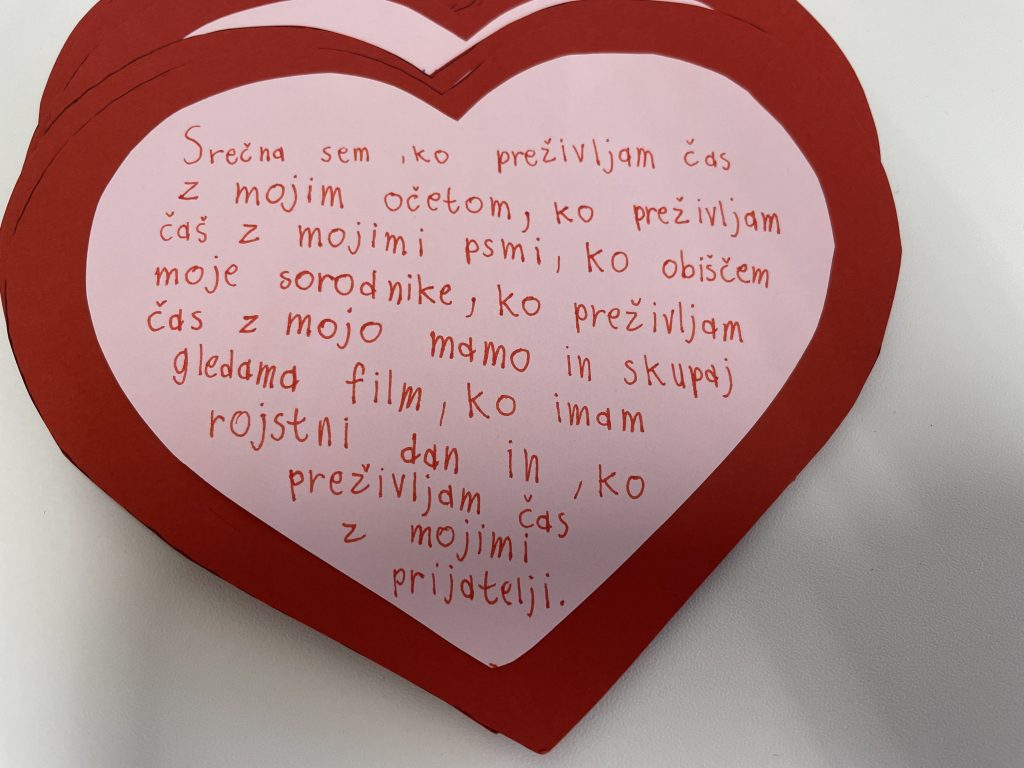 Srečna sem ,ko preživljam čas
z mojim očetom, ko preživljam
čaš z mojimi psmi, ko obiščem
moje sorodnike, ko preživljam
čas z mojo mamo in skupaj
gledama film, ko imam
rojstni dan in ,ko
preživljam čas
z mojimi
prijatelji.